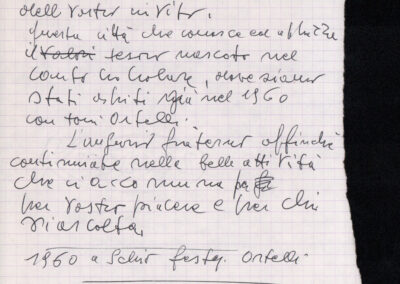 dell vostro invito.
questa città che conosce ed
il tesoro nascosto nel
canto corale, dove siamo
stati ospiti già nel 1960
con toni Ortelli.
L'augurio fraterno affinché
continuiate nella bella attività
che ci accomuna
per vostro piacere e per chi
vi ascolta.
1960 a Schio festeg. Ortelli